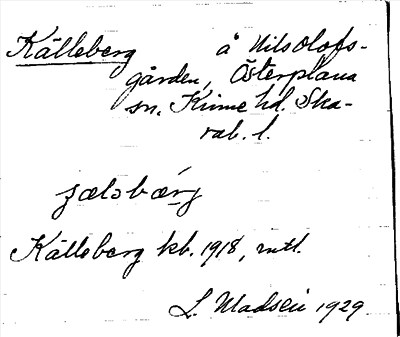 Källeberg å Nilsolofs-
gården, Österplana
sn. Kinne hd. Ska-
rab. l.
Källeberg kb. 1918, mtl.
L. Madsen 1929